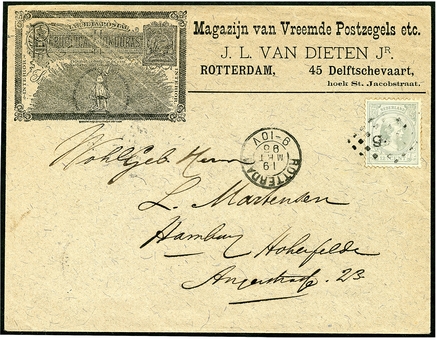 Magazijn van Vreemde Postzegels etc.
J. L. VAN DIETEN JR.
ROTTERDAM, 45 Delftschevaart,
hoek St. Jacobstraat.
ROTTERDAM
19
93
9-10V
5
WohlGeb Herrn
L. Martensen
Hamburg Hohenfelde
Angerstraße 23